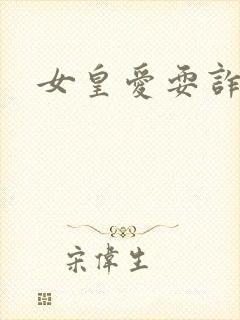 女皇愛耍詐
宋偉生